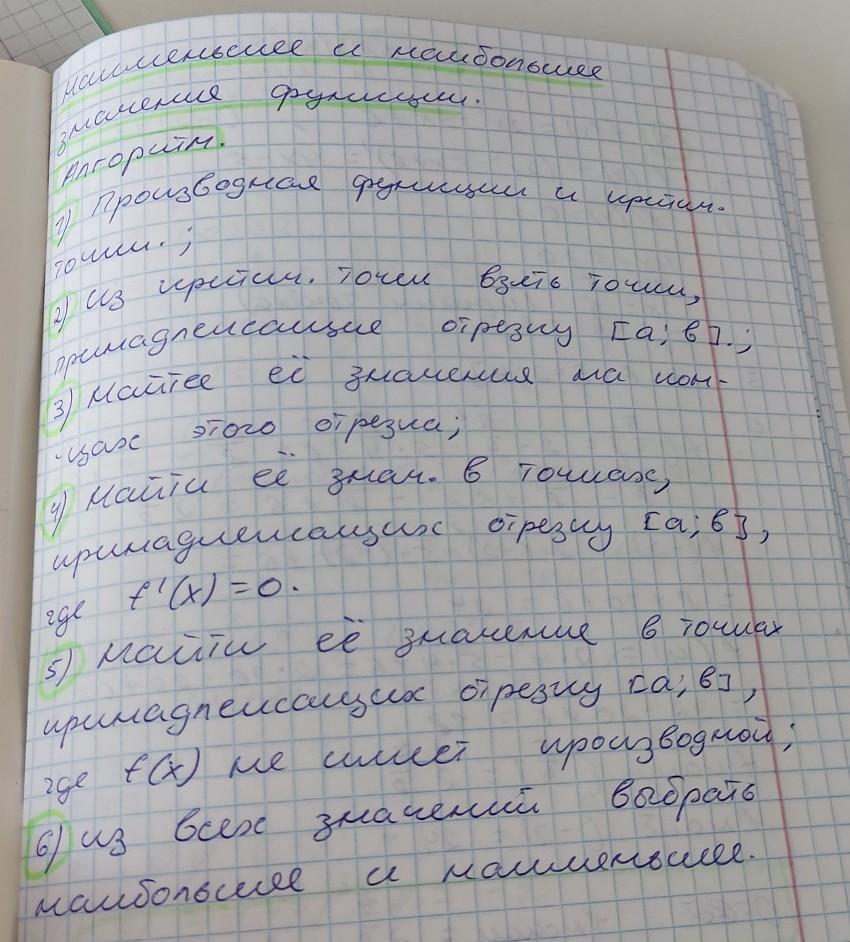 Наименьшее и наибольшее
значения функции.
Алгоритм.
1) Производная функции и критич.
точки.;
2) Из критич. точек взять точки,
принадлежащие отрезку [a; в].;
3) Найтее её значения на кон-
-цах этого отрезка;
4) Найти её знач. в точках,
принадлежащих отрезку [a; в],
где f'(x) = 0.
5) Найти её значение в точках
принадлежащих отрезку [a; в],
где f(x) не имеет производной;
6) Из всех значений выбрать
наибольшее и наименьшее.